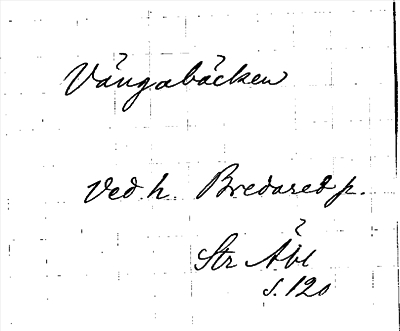 Vångabäcken
Ved h. Bredared p.
Str Åbl
s. 120